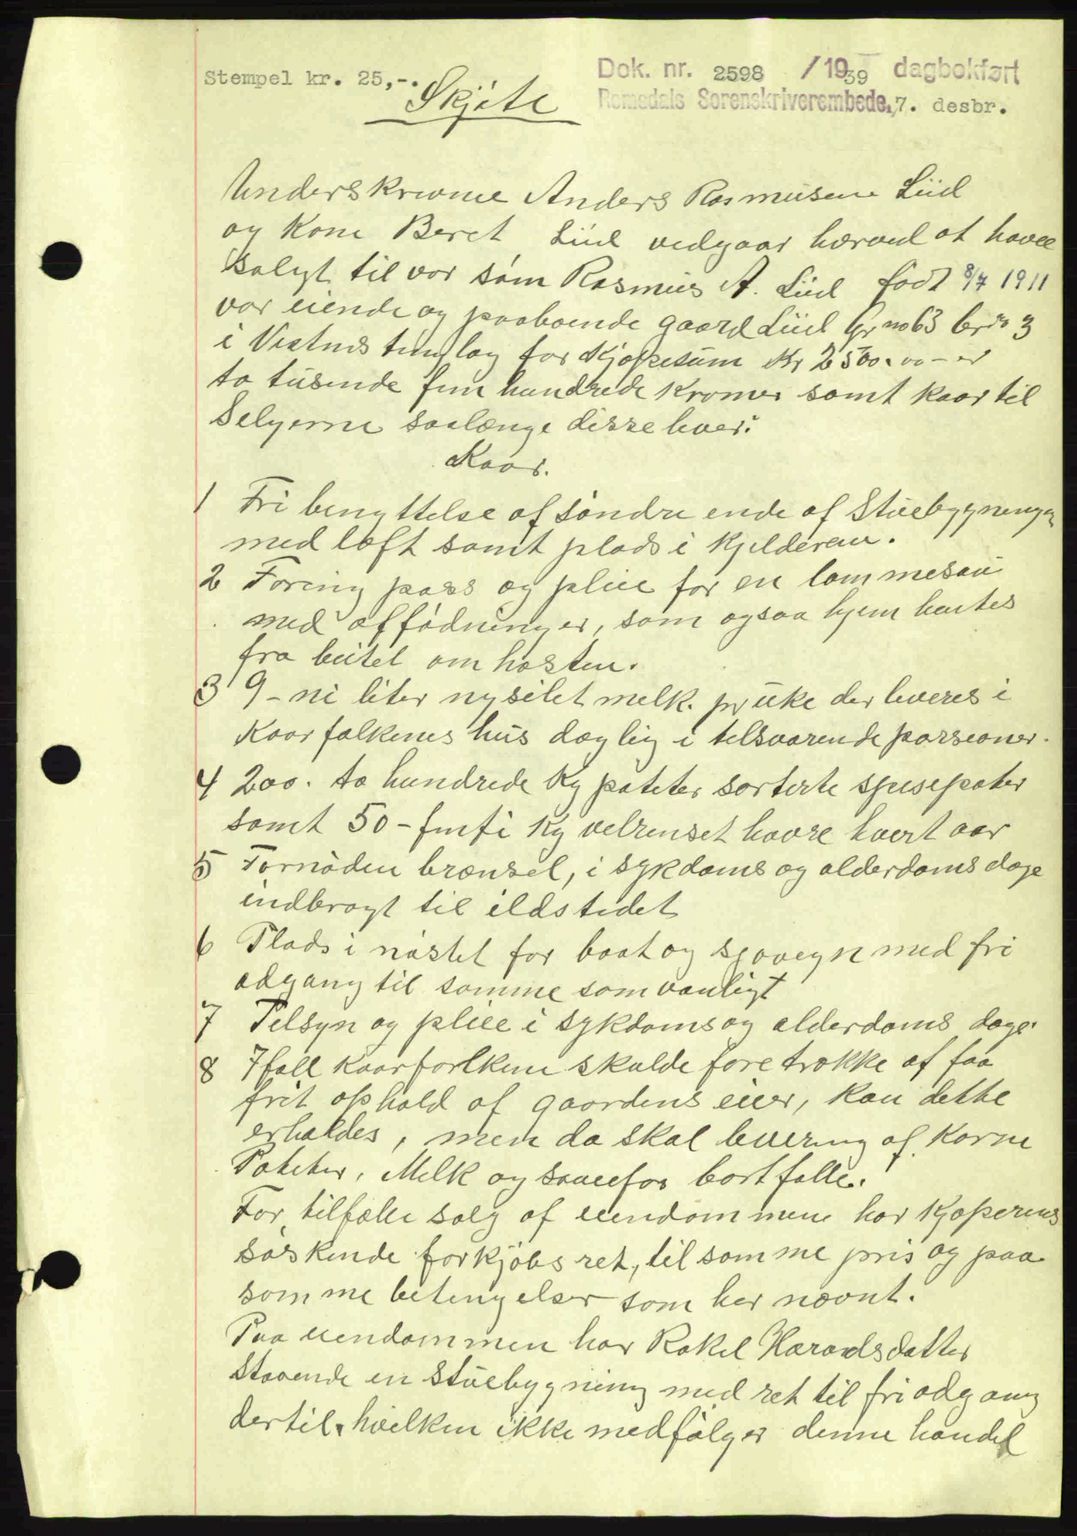 Stempel kr. 25,-.
Dok. nr. 2598 /1939 dagbokført
Romsdals Sorenskriverembede, 7. desbr.
Skjøte
Underskrevne Anders Rasmusen Liid
og Kone Beret Liid vedgaar hærved at have
solgt til vor søm Rasmus A. Liid født 8/7 1911
vor eiende og paaboende gaard Liid Gr no 63 br no 3
i Vestnes tinglag for Kjøpesum Kr 2500.00 - er
to tusende fem hundrede Kroner samt kaar til
Selgerne saalænge disse lever:
Kaar.
1 Fri benyttelse af søndre ende af Stuebygningen
med loft samt plads i kjelderen.
2 Foring pass og pleie for en lammesau
med affødninger, som ogsaa hjem hentes
fra beitet om høsten.
3 9 - ni liter nysilet melk pr uke der leveres i
Kaarfolkenes hus daglig i tilsvarende porsioner.
4 200. to hundrede Kg poteter sorterte spisepoter
samt 50 - femti Kg velrenset havre hvert aar
5 Fornøden brænsel, i sykdoms og alderdoms dage
indbragt til ildstedet
6 Plads i nøstet for baat og sjøvegn med fri
adgang til samme som vanligt
7 Tilsyn og pleie i sykdoms og alderdoms dage.
8 Ifall Kaarfolkene skulde foretrække af faa
frit ophold af gaardens eier, kan dette
erholdes, men da skal levering af Korne
Poteter, Melk og sauefor bortfalle.
For tilfælle salg af eiendommene har Kjøperens
søskende forkjøbs ret, til samme pris og paa
somme betingelser som her nævnt.
Paa eiendommen har Rakel Haraldsdatter
staaende en stuebygning med ret til fri adgang
dertil. hvilken ikke medfølger denne handel